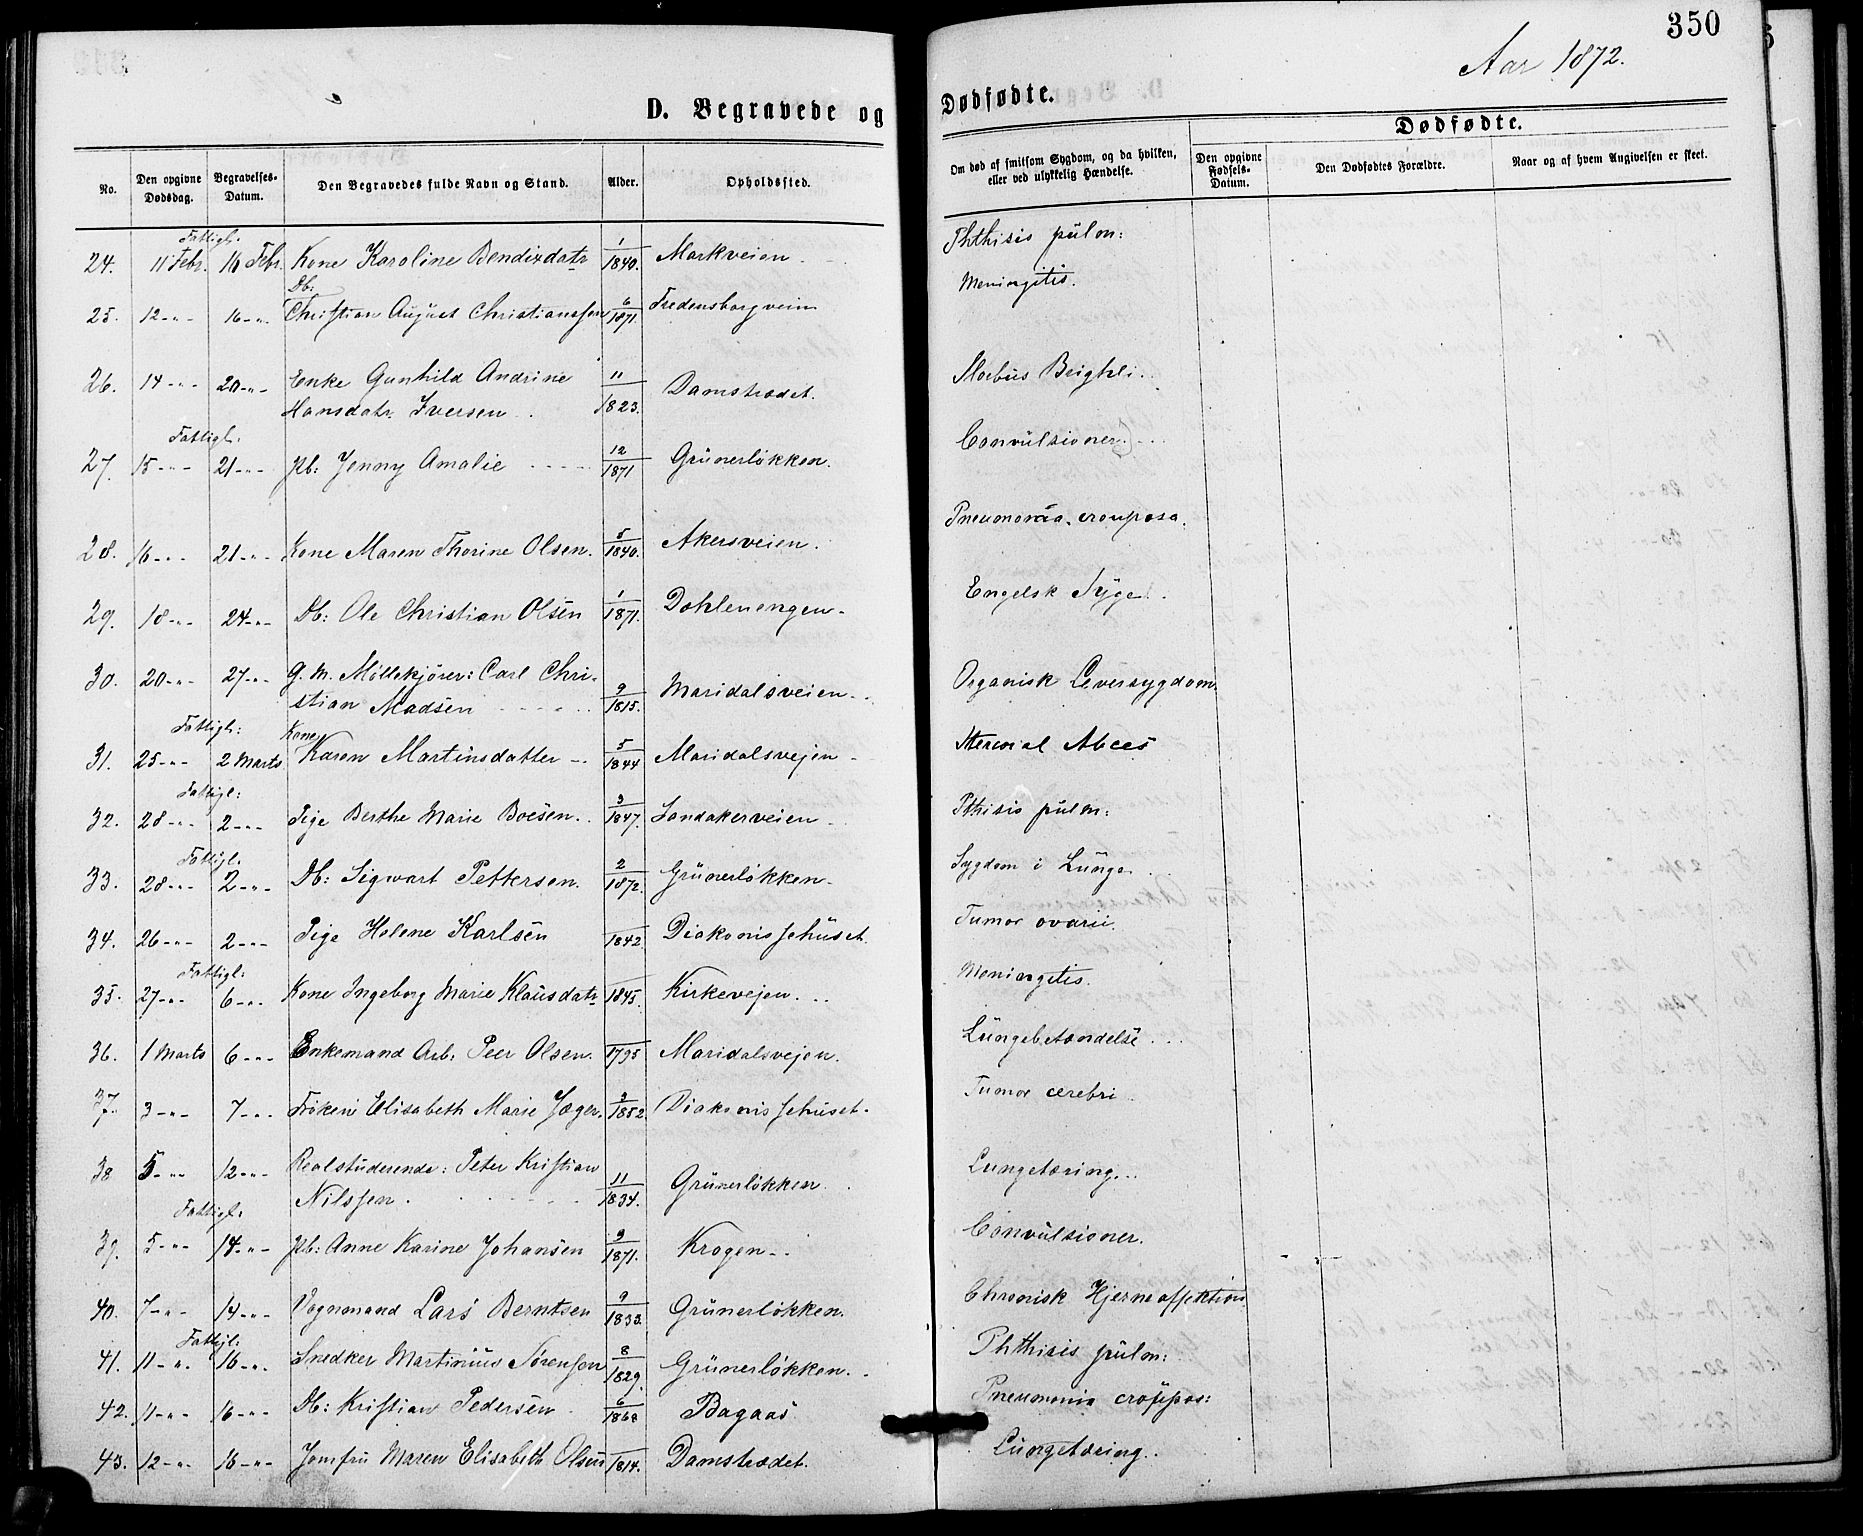 350
Aar 1872.
D. Begravede og Dødfødte.
Dødfødte.
No. Den opgivne Dødsdag. Begravelses-Datum. Den Begravedes fulde Navn og Stand. Alder. Opholdssted. Om død af smitsom Sygdom, og da hvilken, eller ved ulykkelig Hændelse. Den opgivne Fødsels-Datum. Den Dødfødtes Forældre. Naar og af hvem Angivelsen er skeet.
Fattigl:
24. 11 Febr. 16 Febr. Kone Karoline Bendixdatr 1/1840. Markveien. Phthisis pulm:
Db:
25. 12-"- 16-"- Christian August Christianssen 6/1871. Fredensborgveien Meningitis.
26. 14-"- 20-"- Enke Gunhild Andrine 11/1823. Damstrædet. Morbus Brightii.
Hansdatr Iversen
Fattigl:
27. 15-"- 21-"- Pb: Jenny Amalie 12/1871 Grünerløkken. Convulsioner.
28. 16-"- 21-"- Kone Maren Thorine Olsen. 5/1840. Akersveien. Pneumonia crouposa.
29. 18-"- 24-"- Db: Ole Christian Olsen 1/1871. Dohlenengen. Engelsk Syge.
30. 20-"- 27-"- g. M. Møllekjører: Carl Chri-
stian Madsen 9/1815. Maridalsveien. Organisk Leversygdom.
Fattigl: Kone
31. 25-"- 2 Marts Karen Martinsdatter 5/1844 Maridalsvejen Stercoral Abces
Fattigl:
32. 28-"- 2-"- Pige Berthe Marie Boesen. 3/1847. Sandakerveien Pthisis pulm:
Fattigl.
33. 28-"- 2-"- Db: Sigwart Pettersen. 2/1872. Grünerløkken. Sygdom i Lunge
34. 26-"- 2-"- Pige Helene Karlsen 1842 Diakonissehuset. Tumor ovarii.
Fattigl:
35. 27-"- 6-"- Kone Ingeborg Marie Klausdatr 1845. Kirkevejen. Meningitis.
36. 1 Marts 6-"- Enkemand Arb: Peer Olsen. 1795 Maridalsvejen. Lungebetændelse
37. 3-"- 7-"- Frøken Elisabeth Marie Jæger. 3/1852 Diakonissehuset. Tumor cerebri
38 5-"- 12-"- Realstuderende: Peter Kristian
Nilssen. 11/1834. Grünerløkken Lungetæring.
Fattigl:
39. 5-"- 14-"- Pb: Anne Karine Johansen 9/1871. Krogen. Convulsioner.
40. 7-"- 14-"- Vognmand Lars Berntsen 9/1833. Grünerløkken. Chronisk Hjerneaffektion
Fattigl:
41. 11-"- 16-"- Snedker Martinius Sørensen 8/1829. Grünerløkken. Phthisis pulm:
42. 11-"- 16-"- Db: Kristian Pedersen 6/1868 Bagaas Pneumonia croupos:
43. 12-"- 16-"- Jomfru Maren Elisabeth Olsen 1814. Damstrædet. Lungetæring.